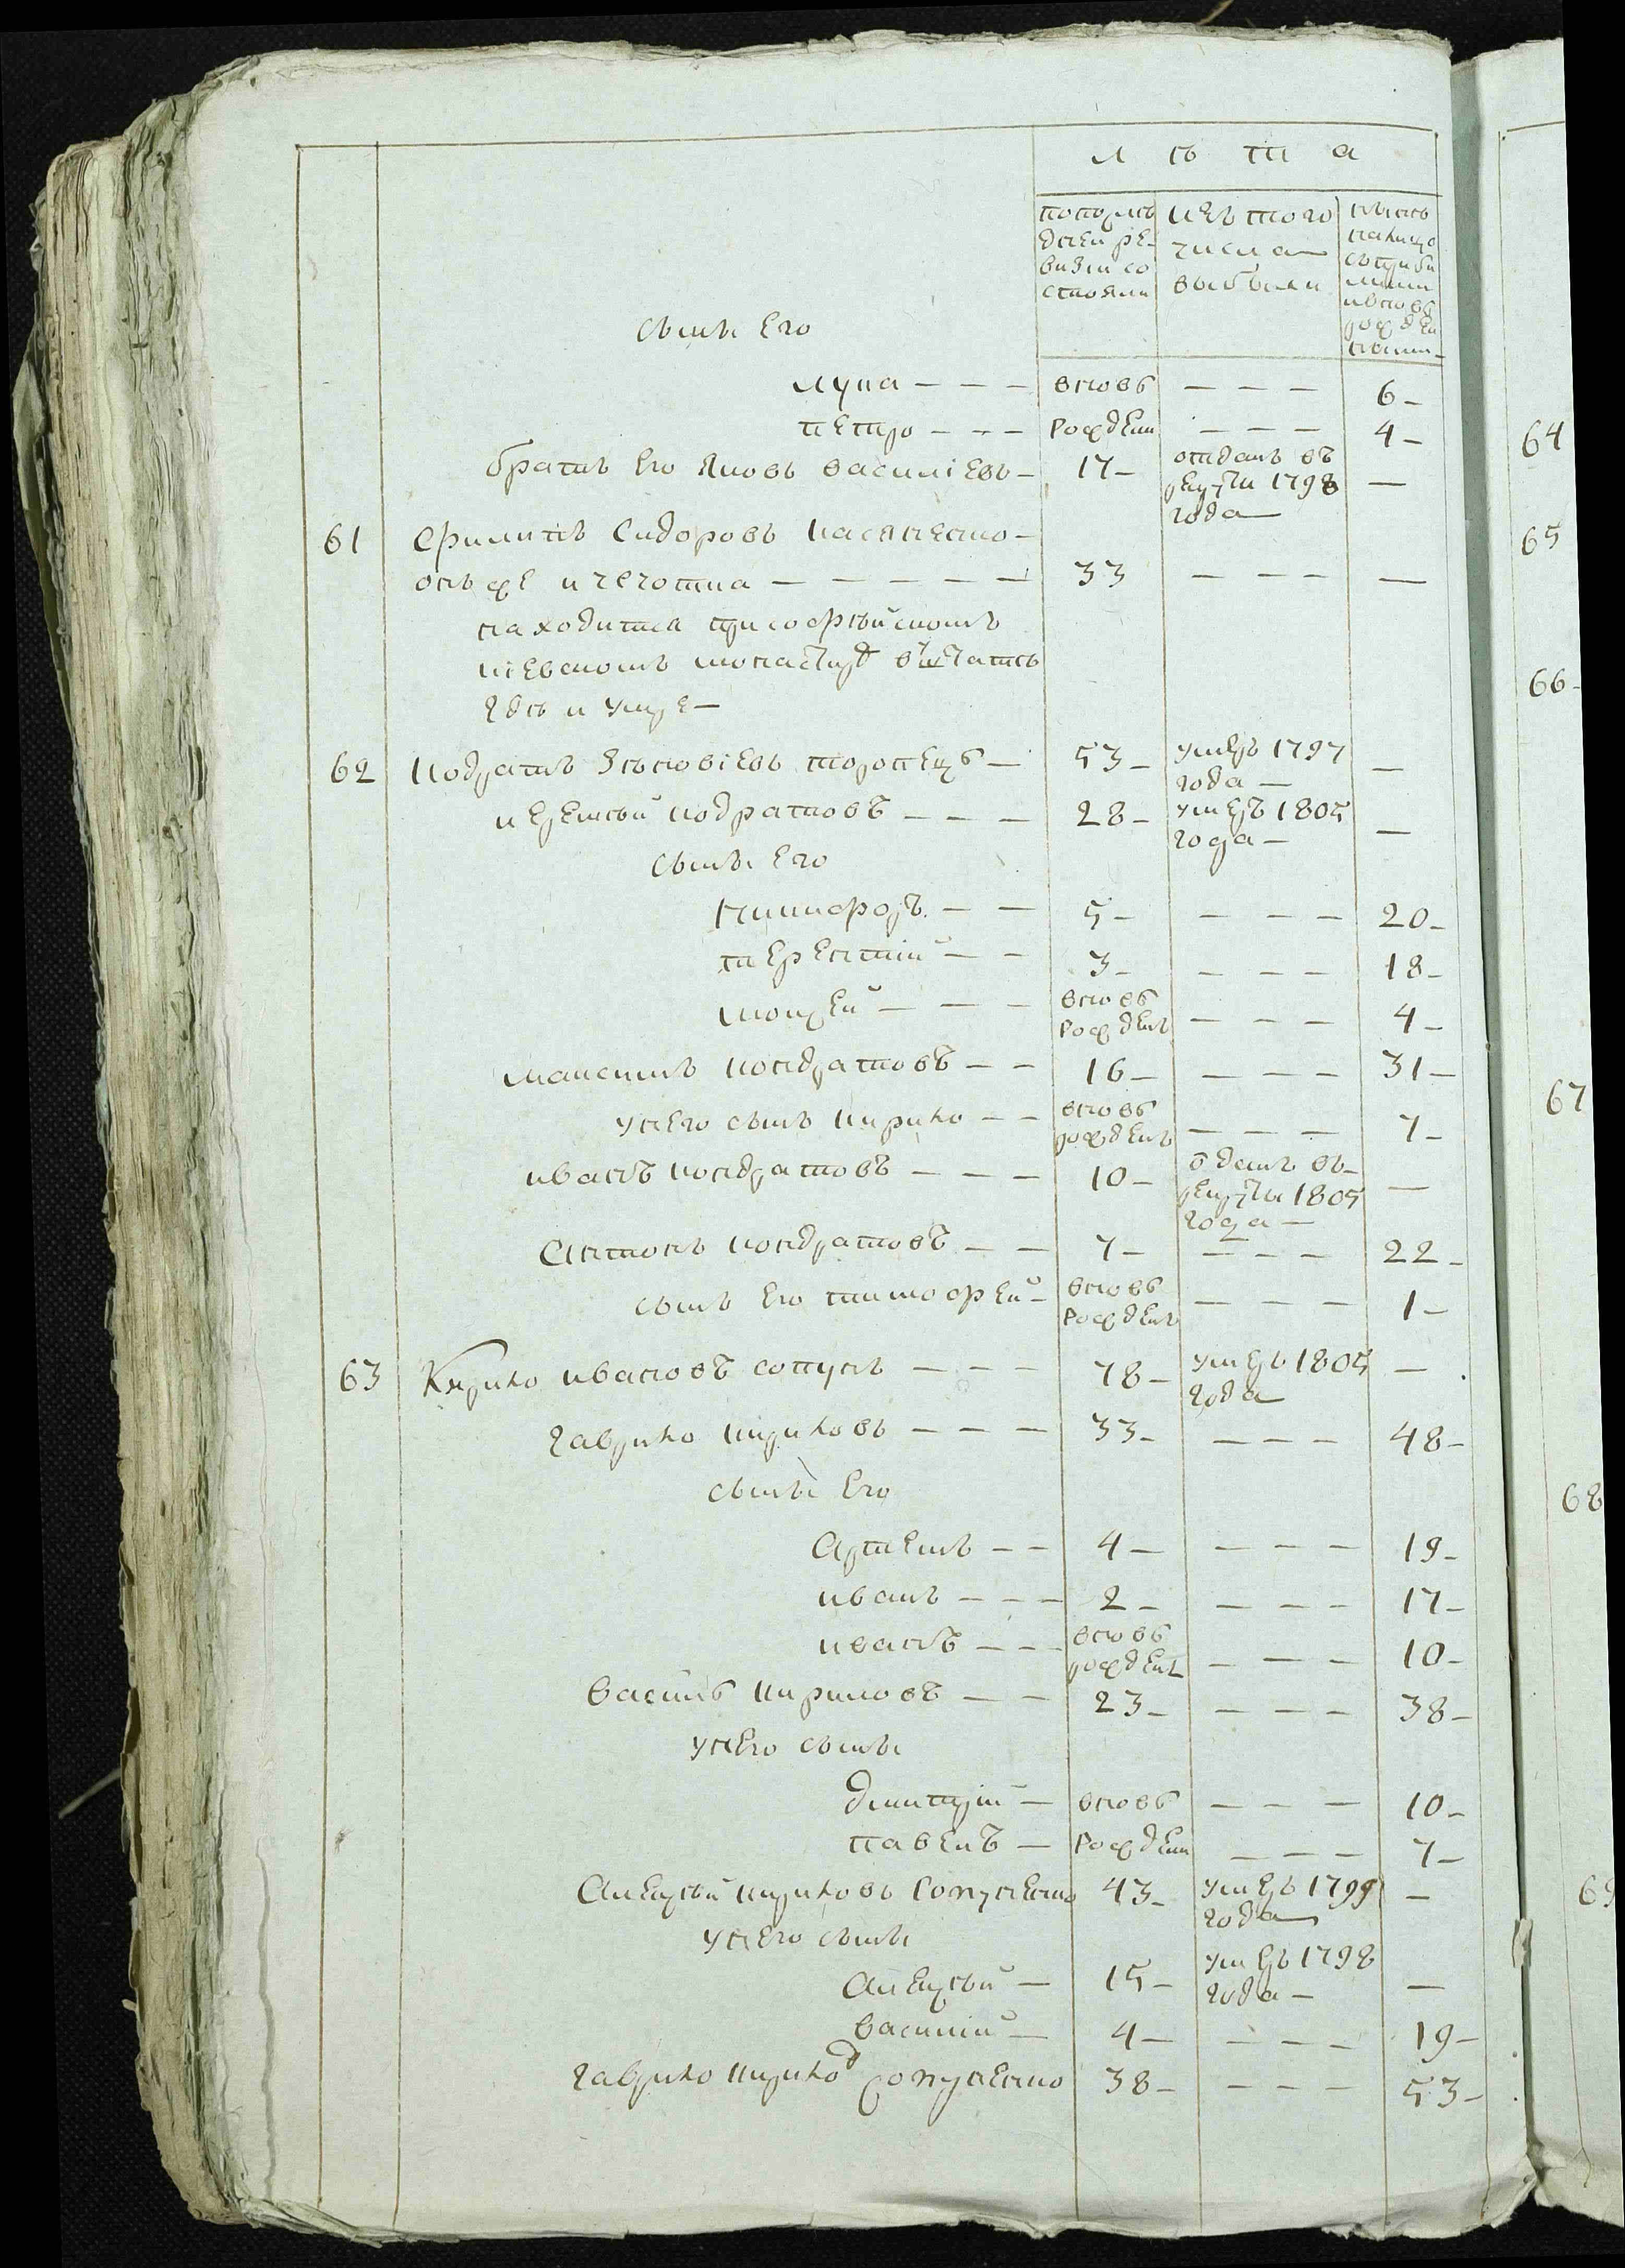 лѣта
попослѣ
дней ре-
визіи со
стояли
изъ того
числа
выбыли
нынѣ
налицо
сыны его
лука — — — вновь — — — 6 —
петро — — — рожден — — — 4 —
братъ его яковъ василіевъ — 17 — отданъ въ
рекруты 1798
года —
61 Филипъ Сидоровъ
онъ же и чечотка — — — — — 33 — — — —
находится при софѣйскомъ
кіевскомъ монастырѣ
гдѣ и умре —
62 Кодратъ Зѣновіевъ — 53 — умеръ 1797
года —
и еремѣй кодратовъ — — — 28 — умеръ 1805
года —
сыны его
никифоръ — — 5 — — — — 20 —
терентій — — 3 — — — — 18 —
мокей — — — вновь
рожденъ — — — 4 —
максимъ кондратовъ — — 16 — — — — 31 —
унего сынъ кирило — — вновь
рожденъ — — — 7 —
иванъ кондратовъ — — — 10 — ѿданъ въ
рекруты 1805
года —
Антонъ кондратовъ — — 7 — — — — 22 —
сынъ его тимофей — вновь
рожденъ — — — 1 —
63 Кирило ивановъ сопунъ — — — 78 — умеръ 1805
года —
гаврило кириловъ — — — 33 — — — — 48 —
сыны его
Артемъ — — 4 — — — — 19 —
иванъ — — — 2 — — — — 17 —
иванъ — — вновь
рожденъ — — — 10 —
василь кириловъ — — 23 — — — — 38 —
унего сыны
дмитрій — вновь — — — 10 —
павелъ — рожден — — — 7 —
Алексѣй кириловъ Сопуненко 43 — умеръ 1799
года —
унего сыны
Алексѣй — 15 — умеръ 1798
года —
василій — 4 — — — — 19 —
гаврило кирило сопуненко 38 — — — — 53 —
64
65
66 —
67
68